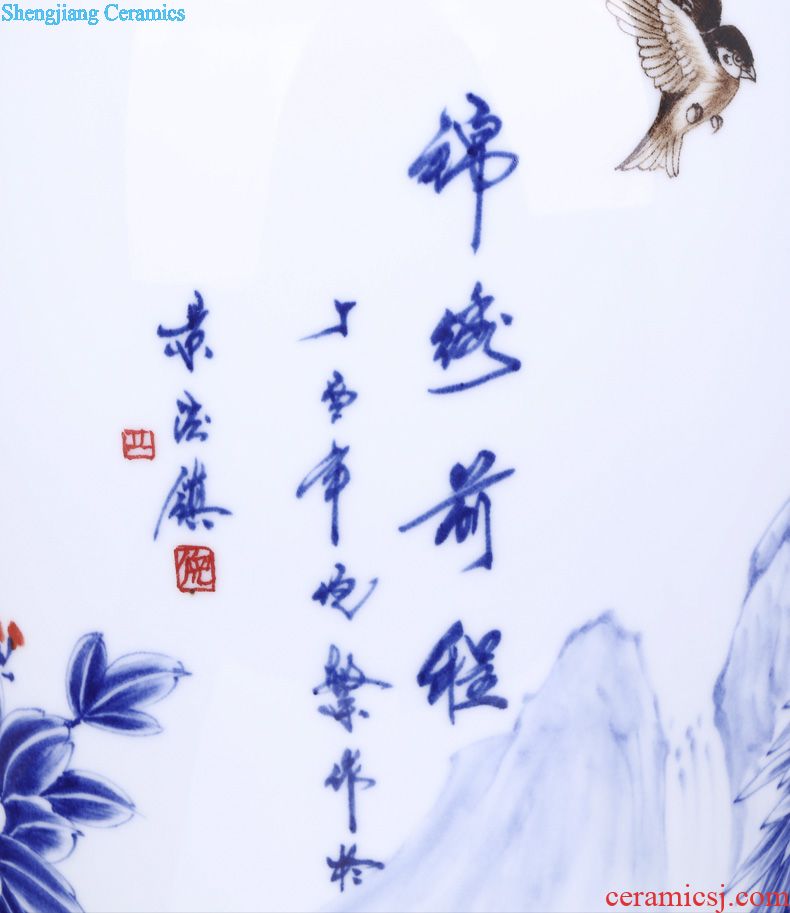 Shengjiang Ceramics
锦绣前程
年
繁作於
景德镇
ceramicsj.com